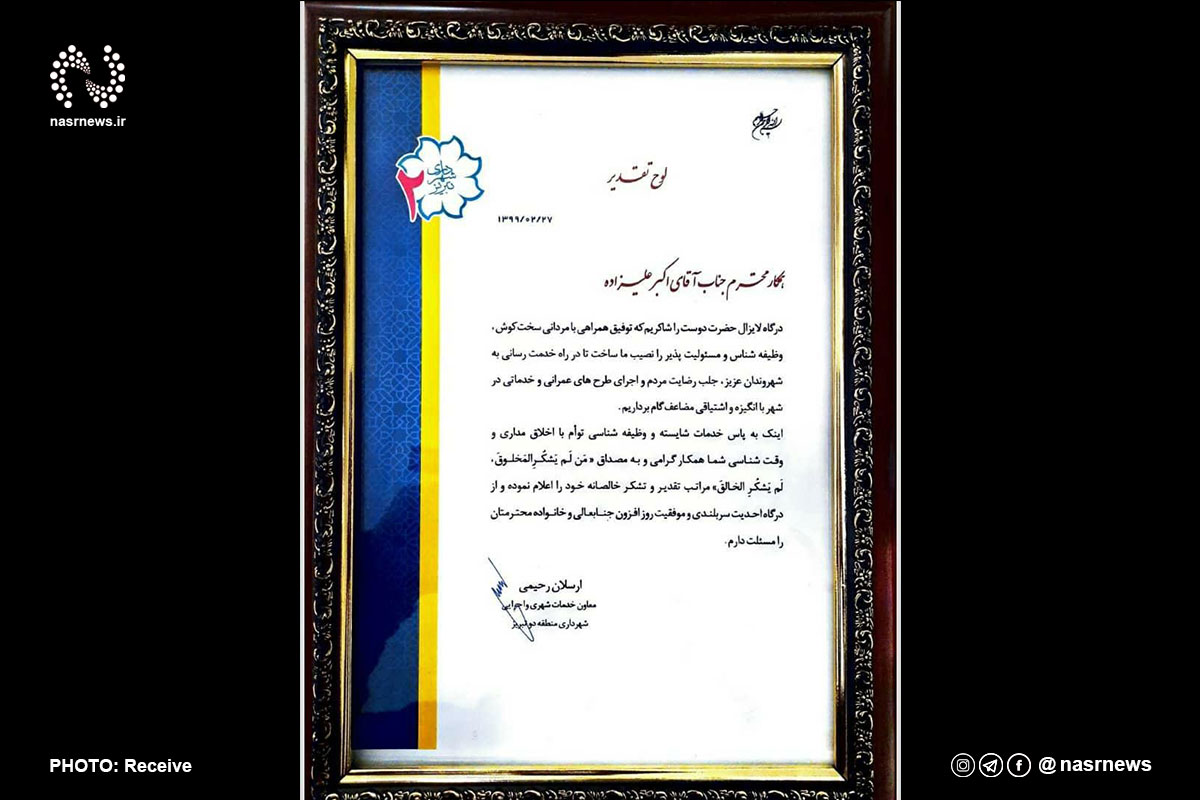 nasrnews.ir
لوح تقدیر
شهرداری
تبریز
۲
۱۳۹۹/۰۲/۲۷
همکار محترم جناب آقای اکبر علیزاده
درگاه لایزال حضرت دوست را شاکریم که توفیق همراهی با مردانی سخت کوش،
وظیفه شناس و مسئولیت پذیر را نصیب ما ساخت تا در راه خدمت رسانی به
شهروندان عزیز، جلب رضایت مردم و اجرای طرح های عمرانی و خدماتی در
شهر با انگیزه و اشتیاقی مضاعف گام برداریم.
اینک به پاس خدمات شایسته و وظیفه شناسی توأم با اخلاق مداری و
وقت شناسی شما همکار گرامی و به مصداق «مَن لَم یَشکُرِ المَخلوقَ،
لَم یَشکُرِ الخالقَ» مراتب تقدیر و تشکر خالصانه خود را اعلام نموده و از
درگاه احدیت سربلندی و موفقیت روز افزون جنابعالی و خانواده محترمتان
را مسئلت دارم.
ارسلان رحیمی
معاون خدمات شهری و اجرایی
شهرداری منطقه دو تبریز
PHOTO: Receive
@nasrnews